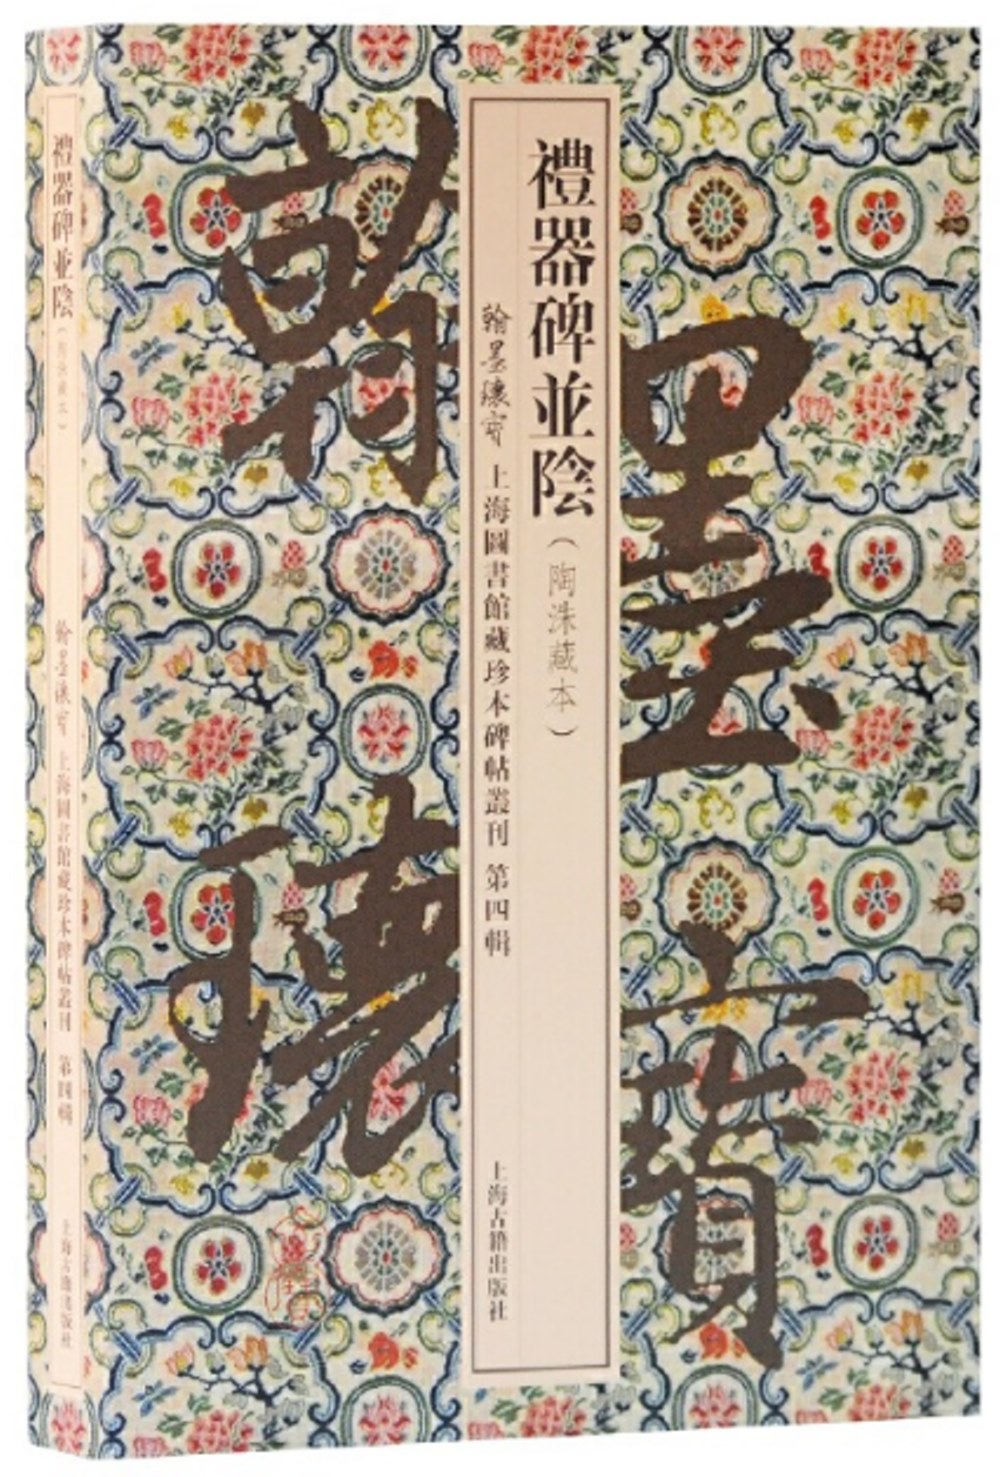 禮器碑並陰
（陶洙藏本）
翰墨瓌寶 上海圖書館藏珍本碑帖叢刊 第四輯
上海古籍出版社
墨寶
翰瓌
禮器碑並陰
（陶洙藏本）
翰墨瓌寶 上海圖書館藏珍本碑帖叢刊 第四輯
上海古籍出版社